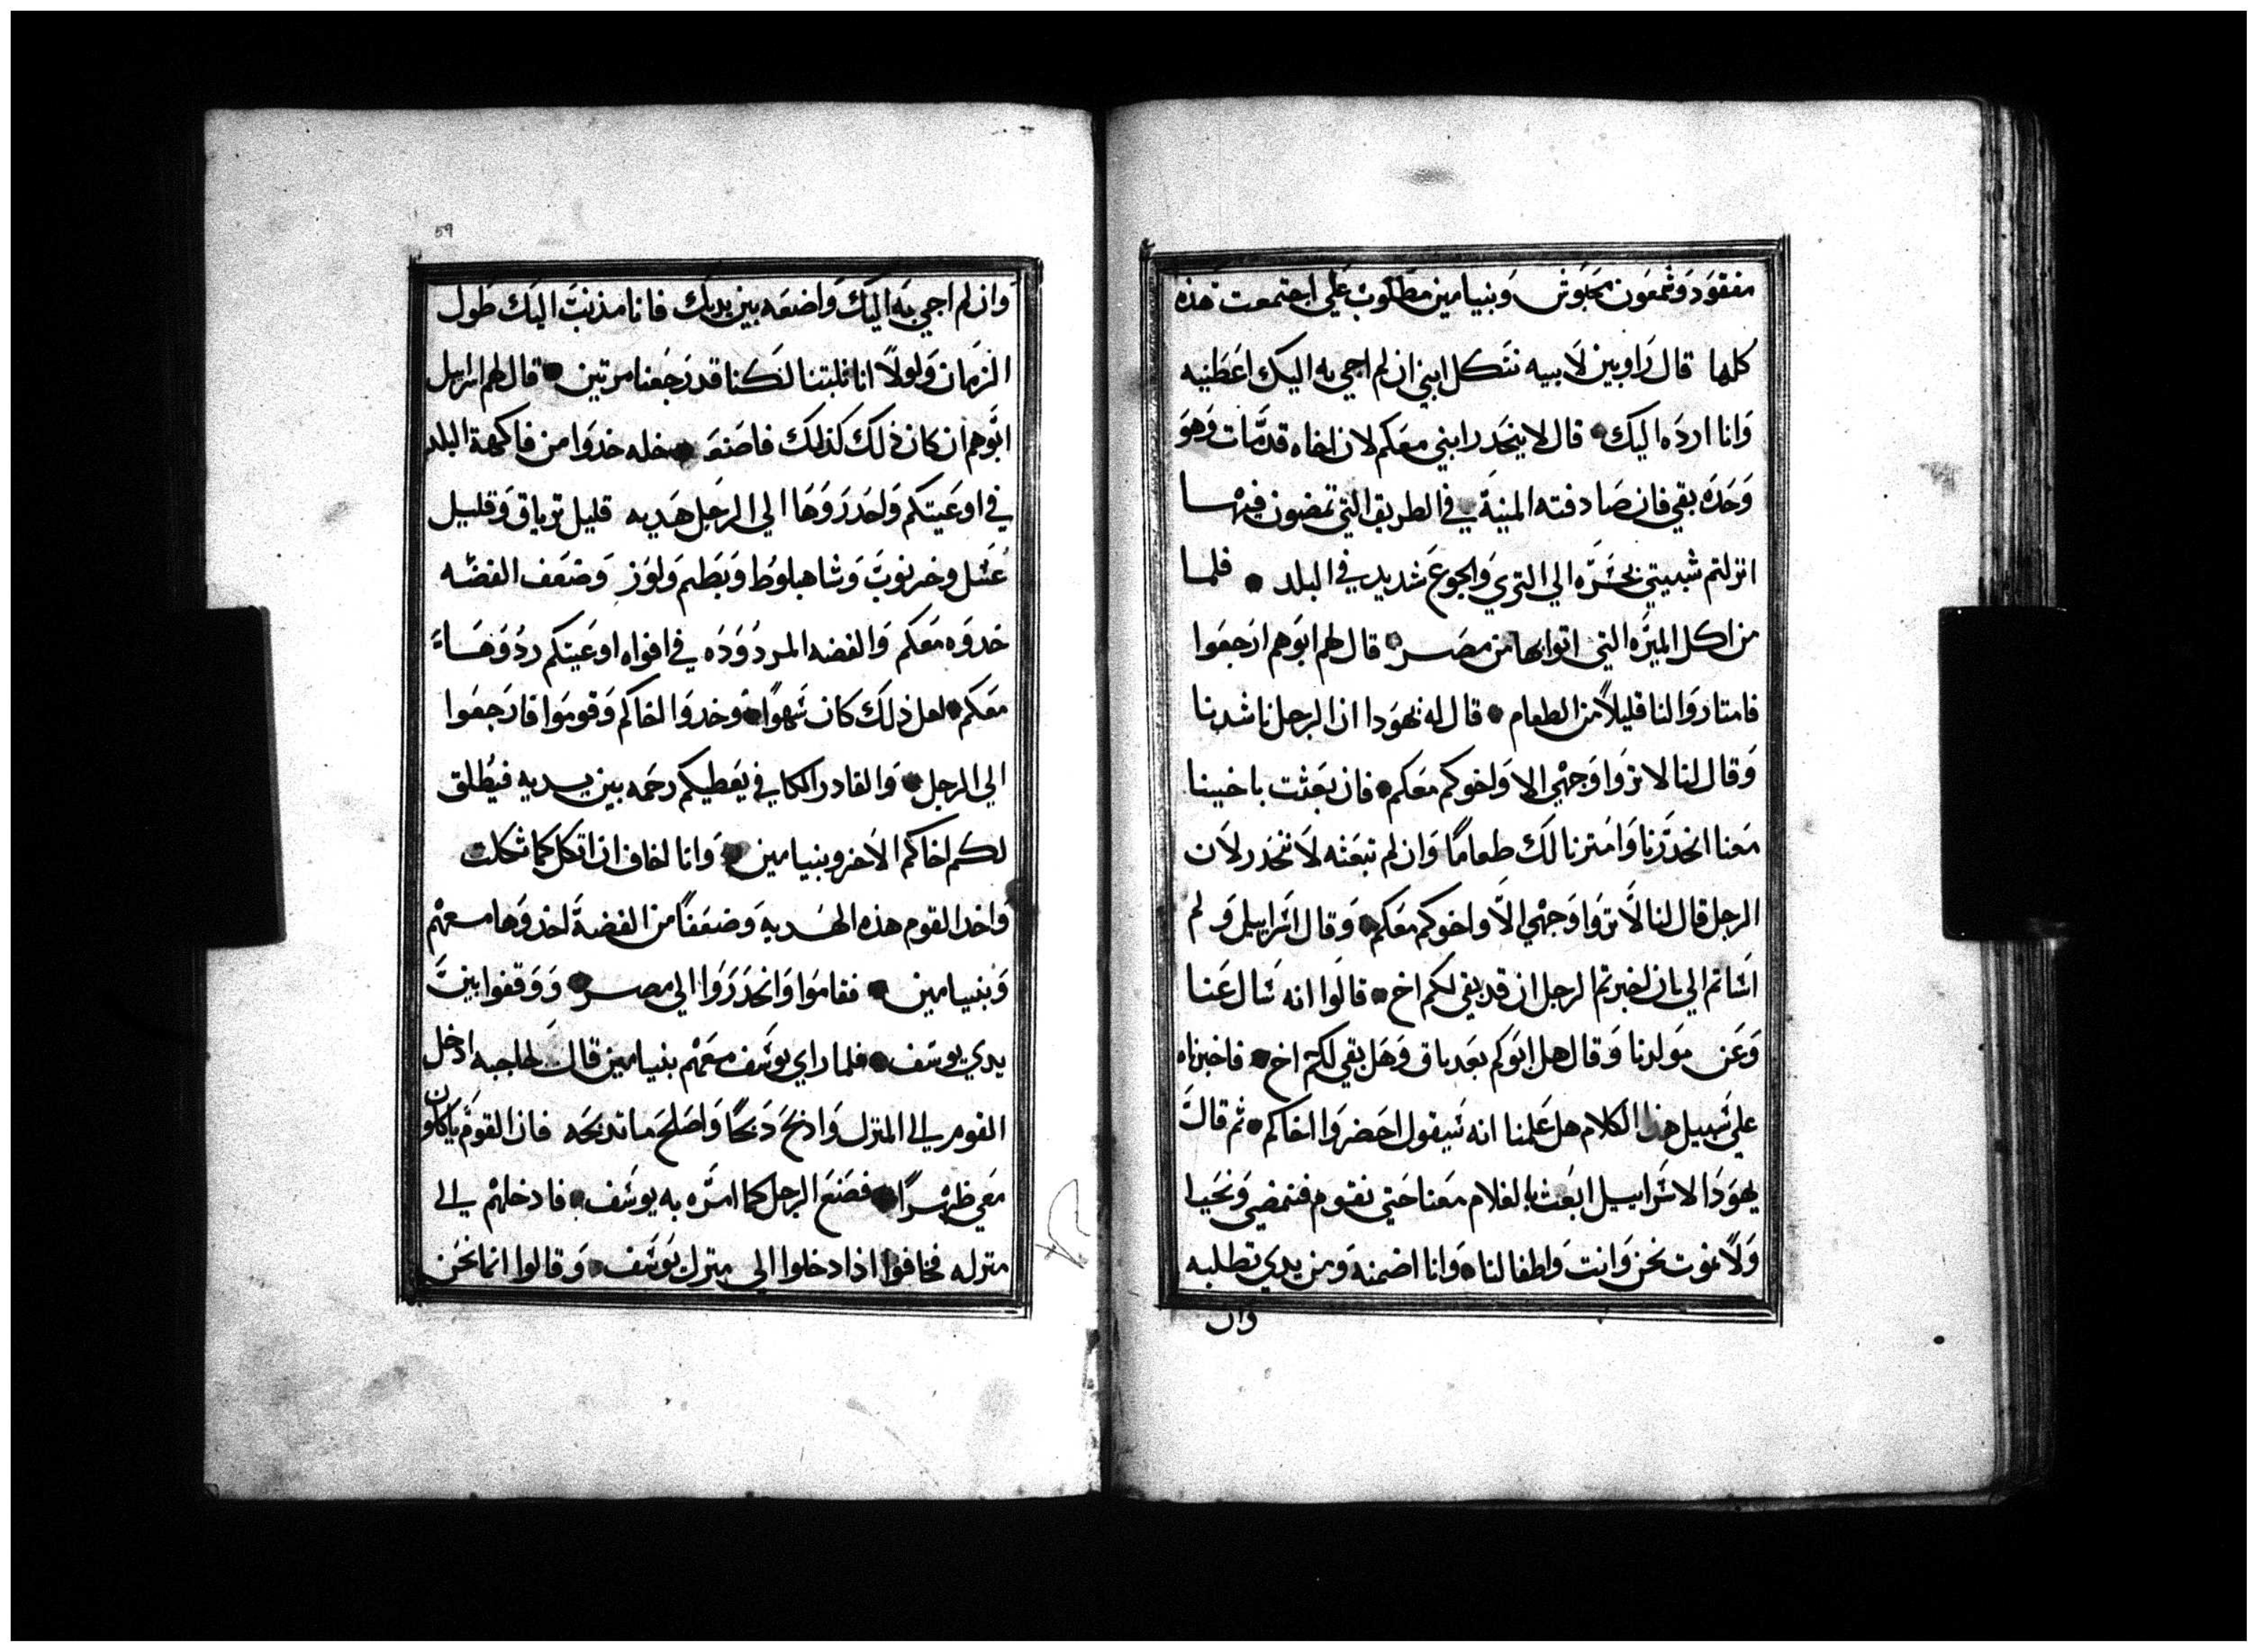 مفقود وشمعون محبوس وبنيامين مطلوب علي اجتمعت هذه
كلها قال راوبين لابيه نتكل ابني ان لم اجي به اليك اعطنيه
وانا ارده اليك قال لا ينحدر ابني معكم لان اخاه قد مات وهو
وحده بقي فان صادفته المنية في الطريق التي تمضون فيها
انزلتم شيبتي بحسره الي الثري والجوع شديد في البلد فلما
من اكل الميره التي اتوا بها من مصر قال لهم ابوهم ارجعوا
فامتاروا لنا قليلاً من الطعام قال له يهودا ان الرجل ناشدنا
وقال لنا لا تروا وجهي الا واخوكم معكم فان بعثت باخينا
معنا انحدرنا وامترنا لك طعاماً وان لم تبعثه لا ننحدر لان
الرجل قال لنا لا تروا وجهي الا واخوكم معكم وقال اسراييل ولم
اساتم الي بان اخبرتم الرجل ان قد بقي لكم اخ قالوا انه سال عنا
وعن مولدنا وقال هل ابوكم بعد باق وهل بقي لكم اخ فاخبرناه
علي سبيل هذا الكلام هل علمنا انه سيقول احضروا اخاكم ثم قال
يهودا لاسراييل ابعث بالغلام معنا حتي نقوم فنمضي ونحيا
ولا نموت نحن وانت واطفالنا وانا اضمنه ومن يدي تطلبه
وان
59
وان لم اجي به اليك واضعه بين يديك فانا مذنب اليك طول
الزمان ولولا انا تلبثنا لكنا قد رجعنا مرتين قال لهم اسراييل
ابوهم ان كان ذلك كذلك فاصنعوا خله خدوا من فاكهة البلد
في اوعيتكم واحدروها الي الرجل هديه قليل ترياق وقليل
عسل وخرنوب وشاهبلوط وبطم ولوز وضعف الفضه
خدوه معكم والفضه المردوده في افواه اوعيتكم ردوها
معكم لعل ذلك كان سهواً وخدوا اخاكم وقوموا فارجعوا
الي الرجل والقادر الكافي يعطيكم رحمه بين يديه فيطلق
لكم اخاكم الاخر وبنيامين وانا اخاف ان اثكل كما ثكلت
واخد القوم هذه الهديه وضعفاً من الفضة اخدوها معهم
وبنيامين فقاموا وانحدروا الي مصر ووقفوا بين
يدي يوسف فلما راي يوسف معهم بنيامين قال لحاجبه ادخل
القوم الي المنزل واذبح دبحاً واصلح ما تدبحه فان القوم ياكلون
معي ظهراً فصنع الرجل كما امره به يوسف فادخلهم الي
منزله فخافوا اذا دخلوا الي منزل يوسف وقالوا انما نحن